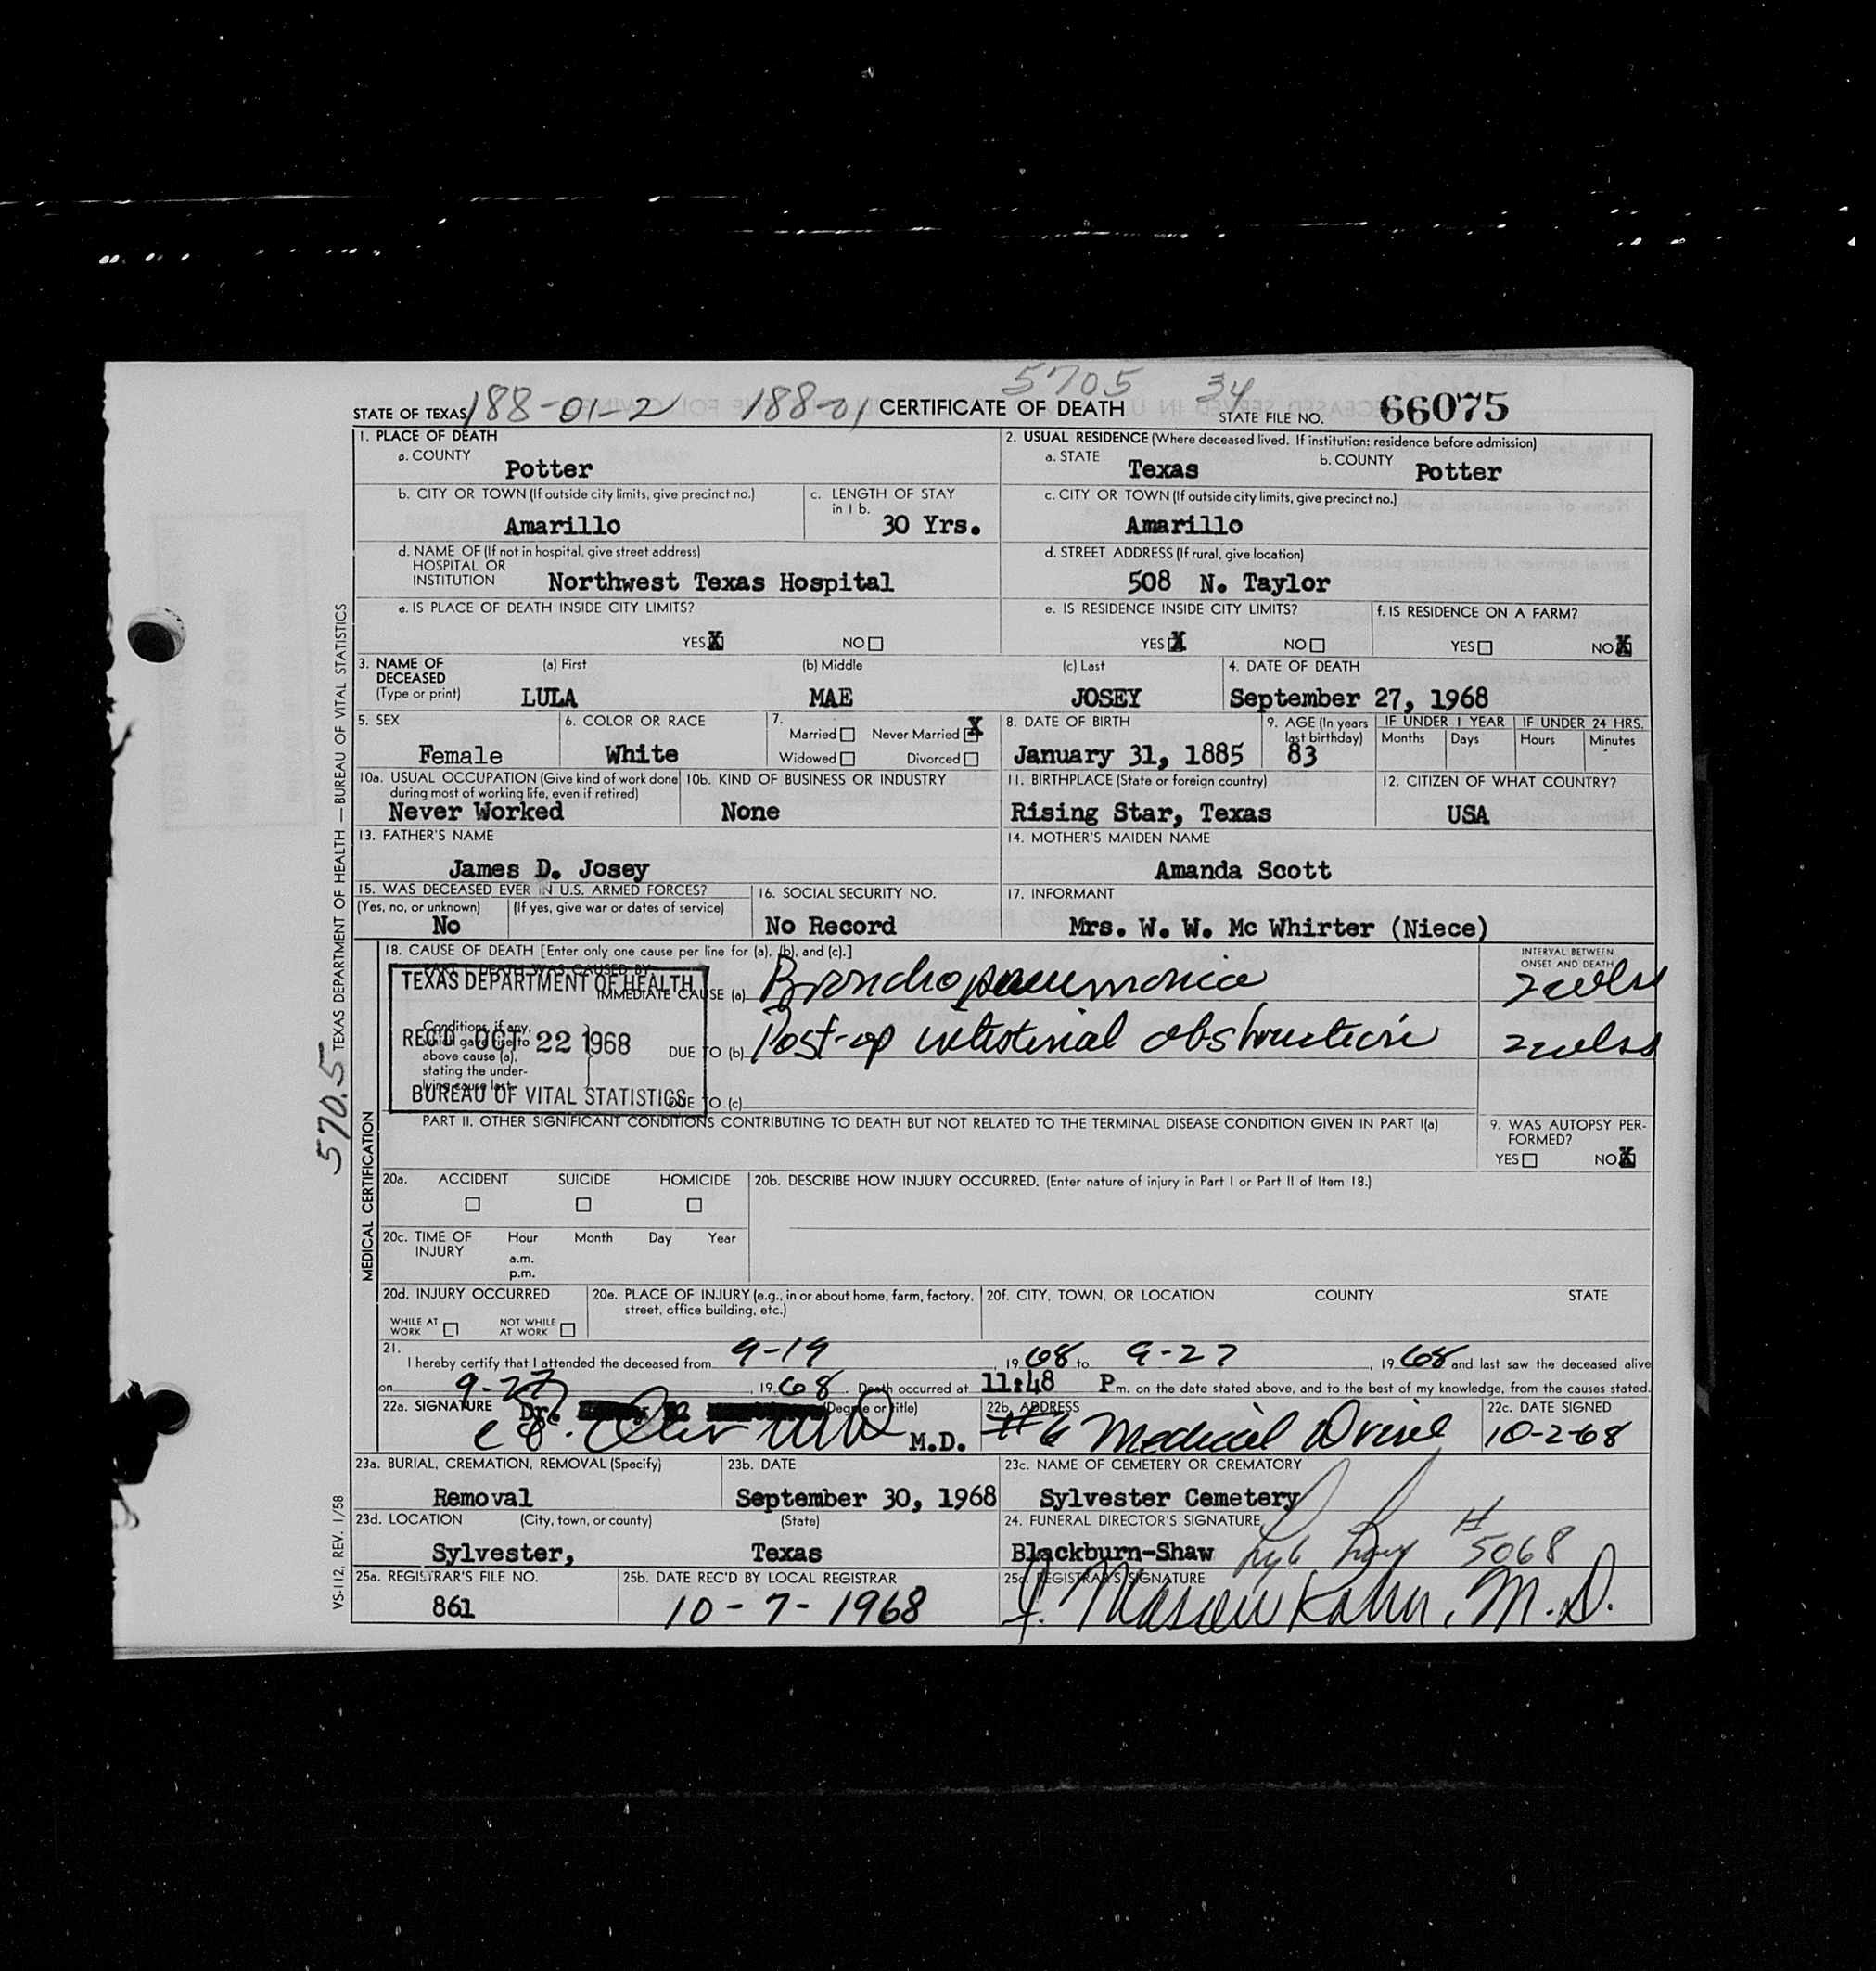 5705 34
STATE OF TEXAS 188-01-2 188-01 CERTIFICATE OF DEATH STATE FILE NO. 66075
1. PLACE OF DEATH
a. COUNTY
Potter
2. USUAL RESIDENCE (Where deceased lived. If institution: residence before admission)
a. STATE Texas b. COUNTY Potter
b. CITY OR TOWN (If outside city limits, give precinct no.)
Amarillo
c. LENGTH OF STAY
in 1 b.
30 Yrs.
c. CITY OR TOWN (If outside city limits, give precinct no.)
Amarillo
d. NAME OF (If not in hospital, give street address)
HOSPITAL OR
INSTITUTION Northwest Texas Hospital
d. STREET ADDRESS (If rural, give location)
508 N. Taylor
e. IS PLACE OF DEATH INSIDE CITY LIMITS?
YES X NO
e. IS RESIDENCE INSIDE CITY LIMITS?
YES X NO
f. IS RESIDENCE ON A FARM?
YES NO X
3. NAME OF
DECEASED
(Type or print)
(a) First (b) Middle (c) Last
LULA MAE JOSEY
4. DATE OF DEATH
September 27, 1968
5. SEX
Female
6. COLOR OR RACE
White
7.
Married Never Married X
Widowed Divorced
8. DATE OF BIRTH
January 31, 1885
9. AGE (In years
last birthday)
83
IF UNDER 1 YEAR
Months Days
IF UNDER 24 HRS.
Hours Minutes
10a. USUAL OCCUPATION (Give kind of work done
during most of working life, even if retired)
Never Worked
10b. KIND OF BUSINESS OR INDUSTRY
None
11. BIRTHPLACE (State or foreign country)
Rising Star, Texas
12. CITIZEN OF WHAT COUNTRY?
USA
13. FATHER'S NAME
James D. Josey
14. MOTHER'S MAIDEN NAME
Amanda Scott
15. WAS DECEASED EVER IN U.S. ARMED FORCES?
(Yes, no, or unknown) (If yes, give war or dates of service)
No
16. SOCIAL SECURITY NO.
No Record
17. INFORMANT
Mrs. W. W. Mc Whirter (Niece)
18. CAUSE OF DEATH [Enter only one cause per line for (a), (b), and (c).]
INTERVAL BETWEEN
ONSET AND DEATH
DEATH WAS CAUSED BY:
IMMEDIATE CAUSE (a) Bronchopneumonia
Conditions, if any,
which gave rise to
above cause (a),
stating the under-
lying cause last.
DUE TO (b) Post-op intestinal obstruction
DUE TO (c)
TEXAS DEPARTMENT OF HEALTH
REC'D OCT 22 1968
BUREAU OF VITAL STATISTICS
PART II. OTHER SIGNIFICANT CONDITIONS CONTRIBUTING TO DEATH BUT NOT RELATED TO THE TERMINAL DISEASE CONDITION GIVEN IN PART I(a)
9. WAS AUTOPSY PER-
FORMED?
YES NO X
20a. ACCIDENT SUICIDE HOMICIDE
20b. DESCRIBE HOW INJURY OCCURRED. (Enter nature of injury in Part I or Part II of Item 18.)
20c. TIME OF
INJURY
Hour Month Day Year
a.m.
p.m.
20d. INJURY OCCURRED
WHILE AT
WORK
NOT WHILE
AT WORK
20e. PLACE OF INJURY (e.g., in or about home, farm, factory,
street, office building, etc.)
20f. CITY, TOWN, OR LOCATION COUNTY STATE
21.
I hereby certify that I attended the deceased from 9-19, 1968 to 9-27, 1968 and last saw the deceased alive
on 9-27, 1968. Death occurred at 11:48 P m. on the date stated above, and to the best of my knowledge, from the causes stated.
22a. SIGNATURE Dr. (Degree or title)
M.D.
22b. ADDRESS
#6 Medical Drive
22c. DATE SIGNED
10-2-68
23a. BURIAL, CREMATION, REMOVAL (Specify)
Removal
23b. DATE
September 30, 1968
23c. NAME OF CEMETERY OR CREMATORY
Sylvester Cemetery
23d. LOCATION (City, town, or county) (State)
Sylvester, Texas
24. FUNERAL DIRECTOR'S SIGNATURE
Blackburn-Shaw # 5068
25a. REGISTRAR'S FILE NO.
861
25b. DATE REC'D BY LOCAL REGISTRAR
10-7-1968
25c. REGISTRAR'S SIGNATURE
M.D.
MEDICAL CERTIFICATION
TEXAS DEPARTMENT OF HEALTH — BUREAU OF VITAL STATISTICS
570.5
VS-112, REV. 1/58